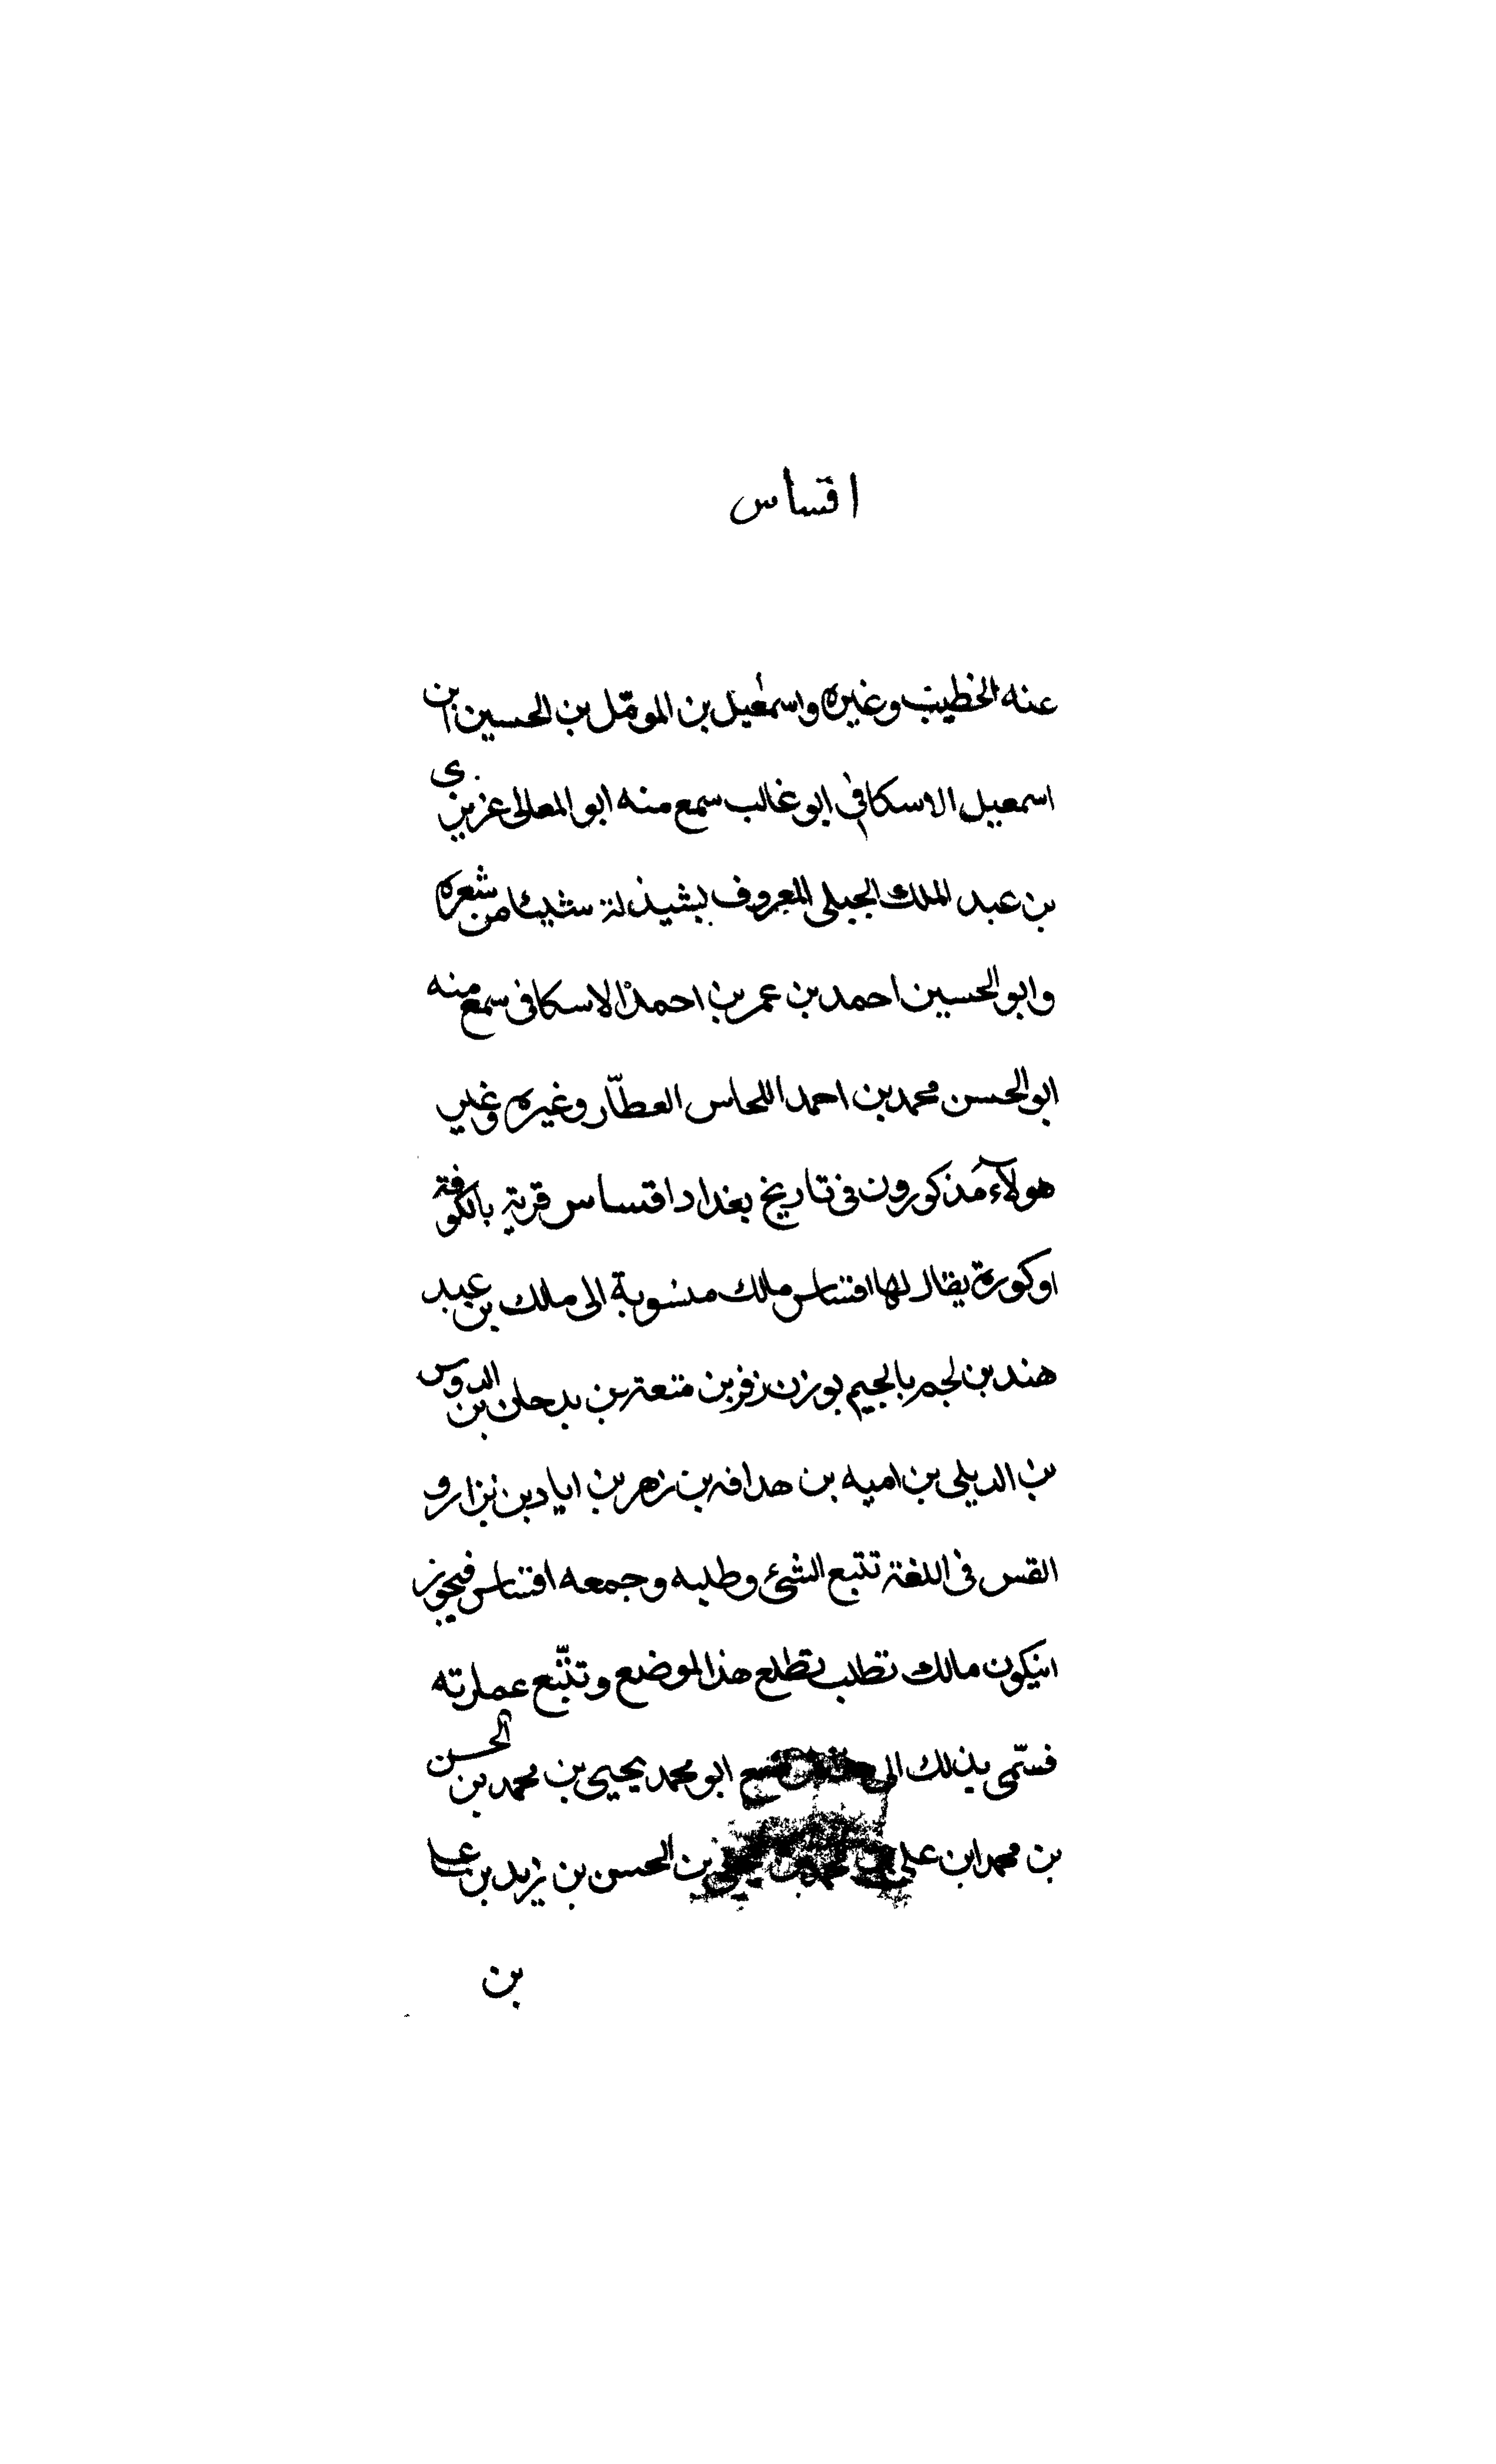 اقساس
عنه الخطيب وغيره واسمعيل بن المومّل بن الحسين ابن
اسمعيل الاسكافى ابو غالب سمع منه ابو المعالى عزيزى
بن عبد الملك الجيلى المعروف بشيذلة شيئا من شعره
وابو الحسين احمد بن عمر بن احمد الاسكافى سمع منه
ابو الحسن محمد بن احمد اللحاس العطّار وغيره وغير
هولآء مذكورون فى تاريخ بغداد اقساس قرية بالكوفة
او كورة يقال لها اقساس مالك منسوبة الى مالك بن عبد
هند بن لجم بالجيم بوزن زفر بن منعة بن بدحلن بن الدوس
بن الديلى بن اميه بن هدافه بن زهر بن اياد بن نزار و
القس فى اللغة تتبع الشئ وطلبه وجمعه اقساس فيجوز
انيكون مالك تطلب تطلع هذا الموضع وتتبّع عمارته
فسمّى بذلك الى ابو محمد يحيى بن محمد بن الحسن
بن محمد ابن على بن محمد بن يحيى بن الحسن بن زيد بن على
بن